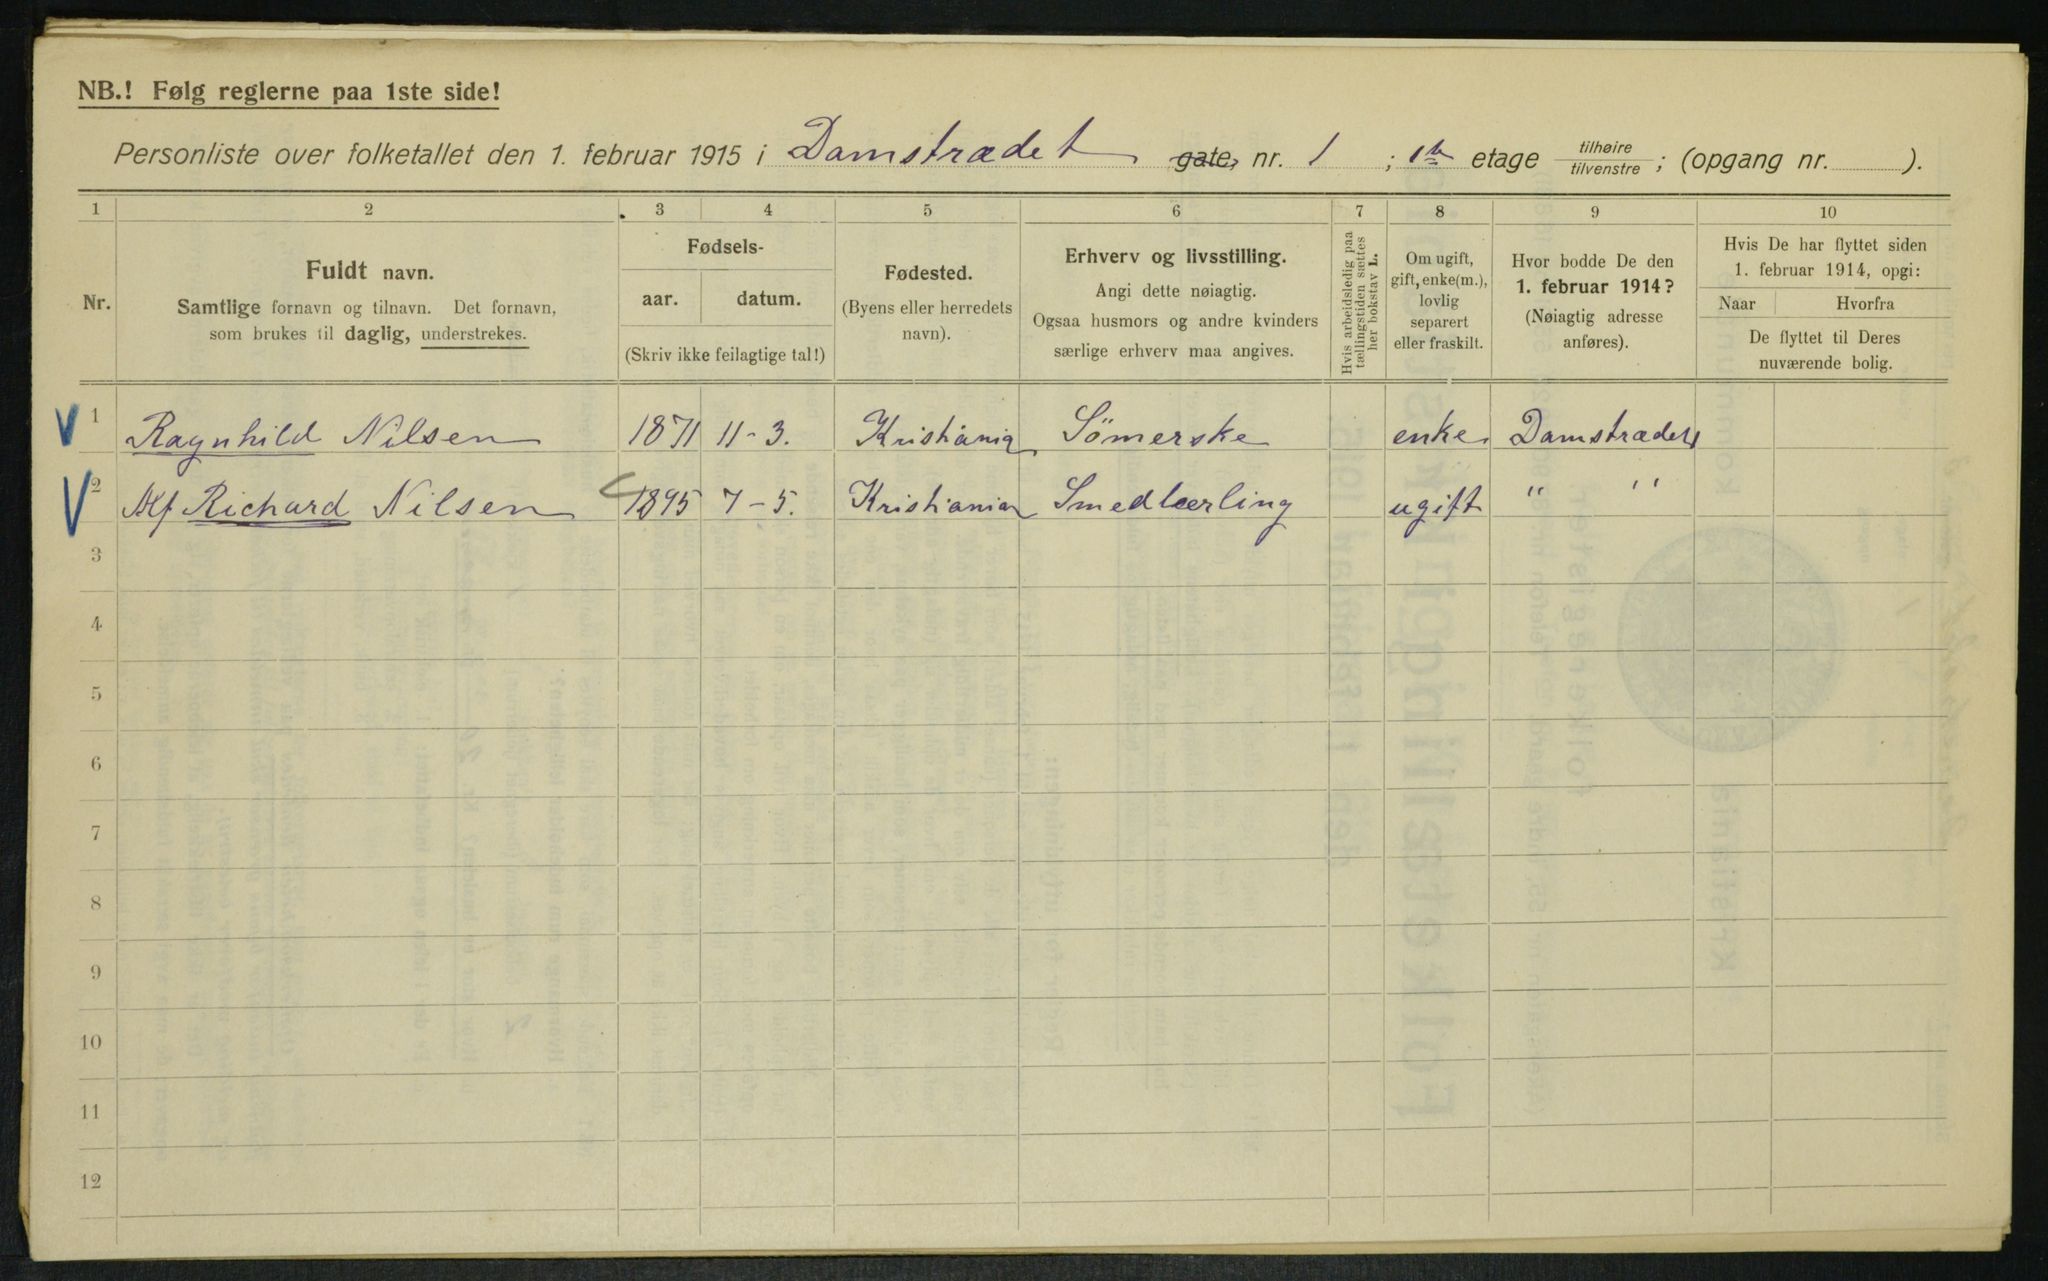 NB.! Følg reglerne paa 1ste side!
Personliste over folketallet den 1. februar 1915 i Damstrædet gate, nr. 1 ; 1ste etage tilhøire tilvenstre ; (opgang nr. ).
1 2 3 4 5 6 7 8 9 10
Nr.
Fuldt navn.
Samtlige fornavn og tilnavn. Det fornavn,
som brukes til daglig, understrekes.
Fødsels-
aar. datum.
(Skriv ikke feilagtige tal!)
Fødested.
(Byens eller herredets
navn).
Erhverv og livsstilling.
Angi dette nøiagtig.
Ogsaa husmors og andre kvinders
særlige erhverv maa angives.
Hvis arbeidsledig paa
tællingstiden sættes
her bokstav L.
Om ugift,
gift, enke(m.),
lovlig
separert
eller fraskilt.
Hvor bodde De den
1. februar 1914?
(Nøiagtig adresse
anføres).
Hvis De har flyttet siden
1. februar 1914, opgi:
Naar Hvorfra
De flyttet til Deres
nuværende bolig.
1 Ragnhild Nilsen 1871 11-3. Kristiania Sömerske enke Damstrædet 1
2 Alf Richard Nilsen 1895 7-5. Kristiania Smedlærling ugift " "
3
4
5
6
7
8
9
10
11
12